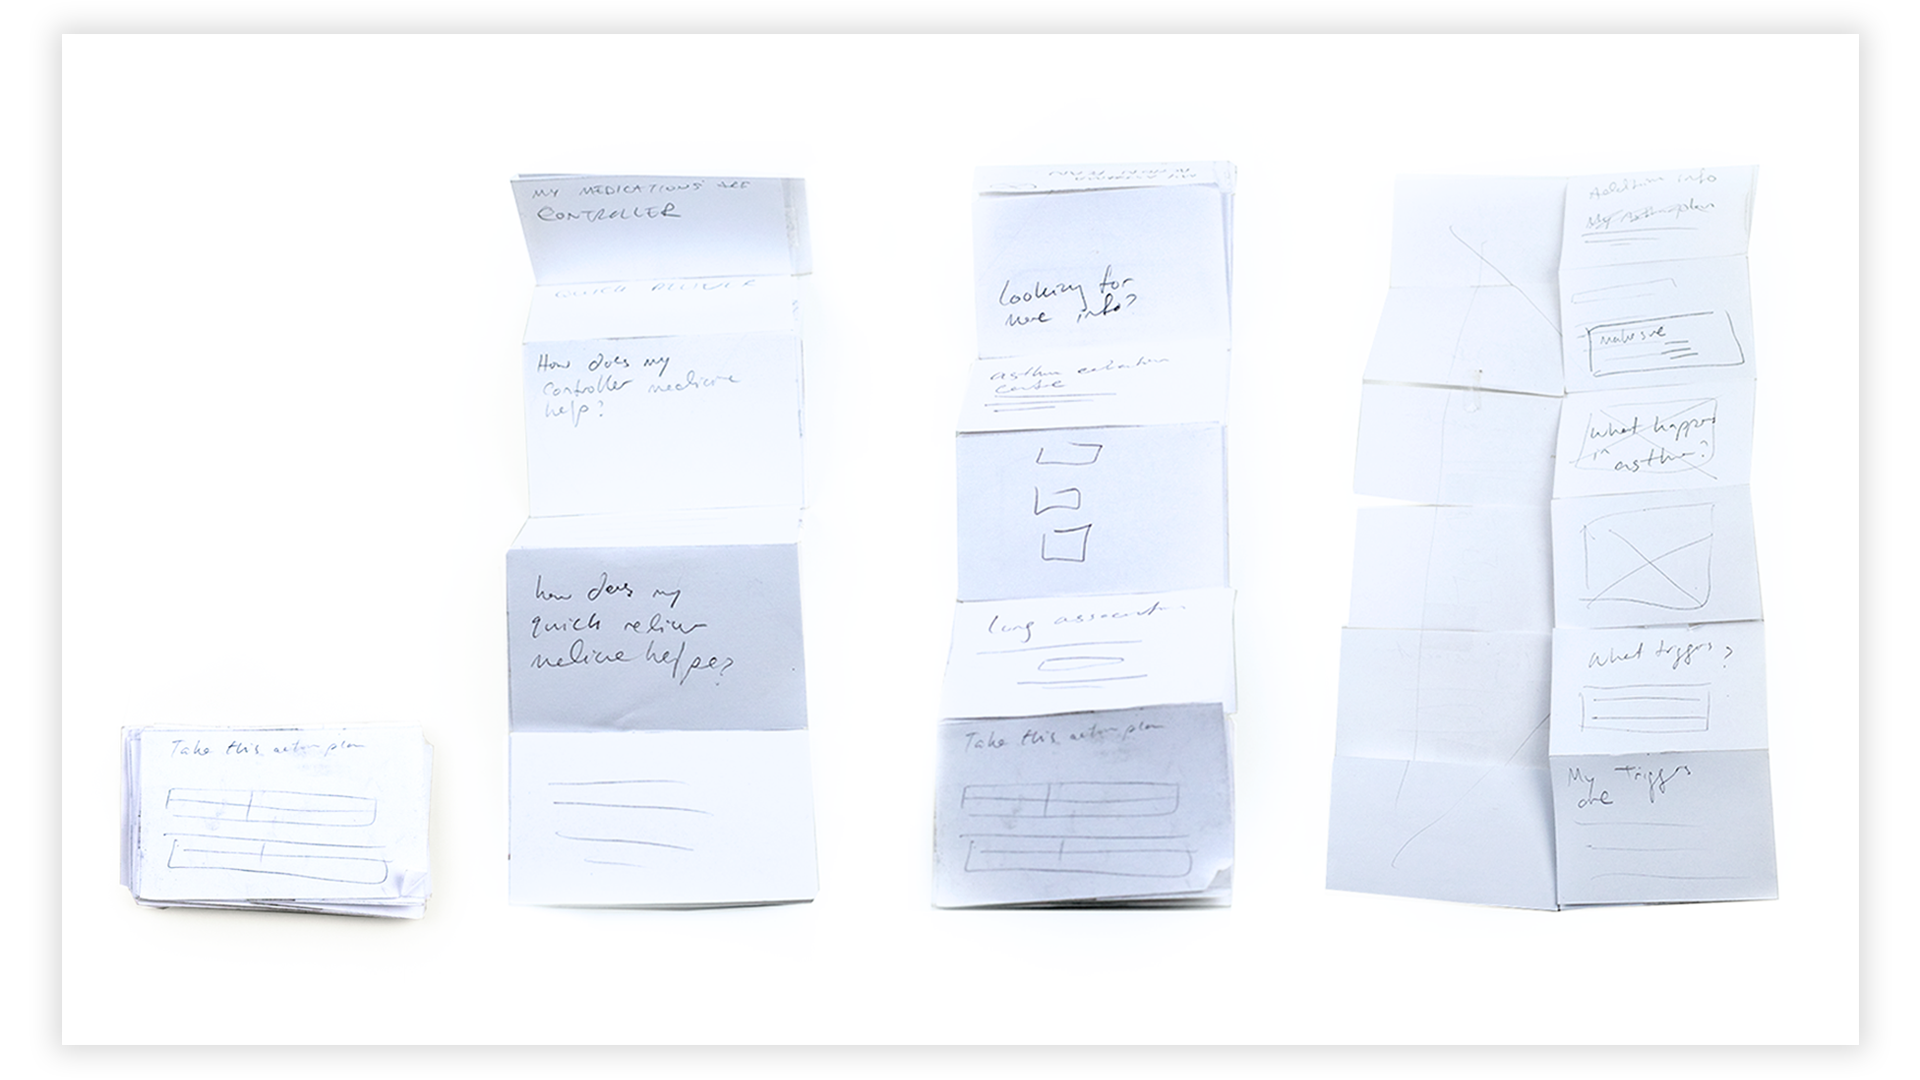 Take this action plan
MY MEDICATIONS ARE
CONTROLLER
QUICK RELIEVER
How does my
controller medicine
help?
how does my
quick
Looking for
more info?
asthma education
centre
lung association
Take this action plan
Addition info
My Asthma plan
make sure
What happens
in asthma?
What triggers?
My Triggers
are